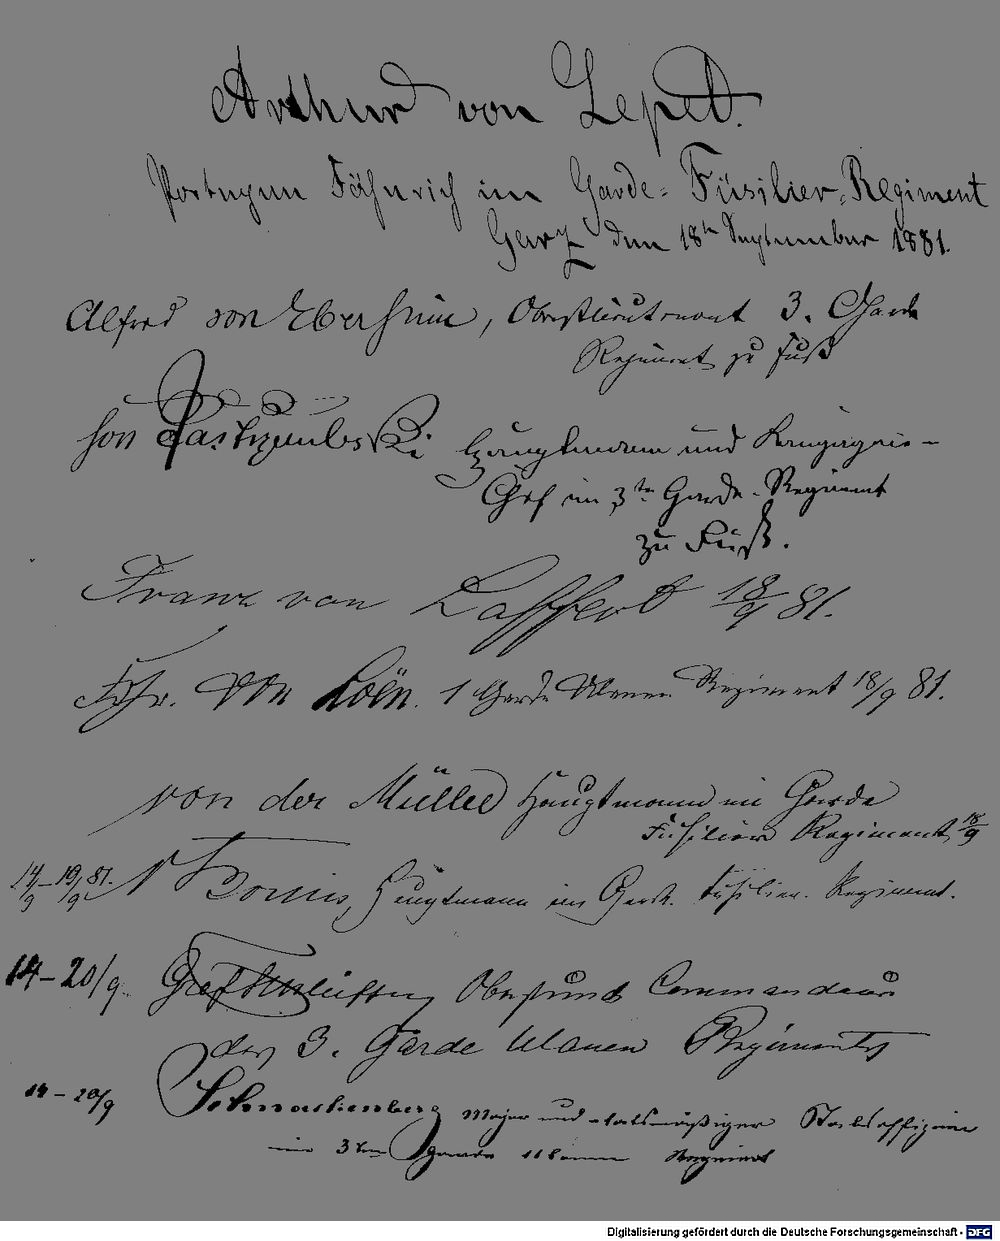 Arthur von Lepel.
Portepee Fähnrich im Garde-Füsilier-Regiment
Garz den 18ten September 1881.
Alfred von Ebersheim, Oberstlieutenant 3. Garde
Regiment zu Fuß
von Hauptmann und Kompagnie-
Chef im 3ten Garde-Regiment
zu Fuß.
Franz von Laffert 18/9 81.
Frhr. von Loën. 1 Garde Ulanen Regiment 18/9 81.
von der Mülbe Hauptmann im Garde
Füsilier Regiment 18/9
14/9-19/9 81. v Hauptmann im Garde. Füsilier. Regiment.
14-20/9 Graf Oberst und Commandeur
des 3. Garde Ulanen Regiments
14-20/9 Schnackenberg Major und etatsmäßiger Stabsoffizier
im 3ten Garde Ulanen Regiment
Digitalisierung gefördert durch die Deutsche Forschungsgemeinschaft - DFG